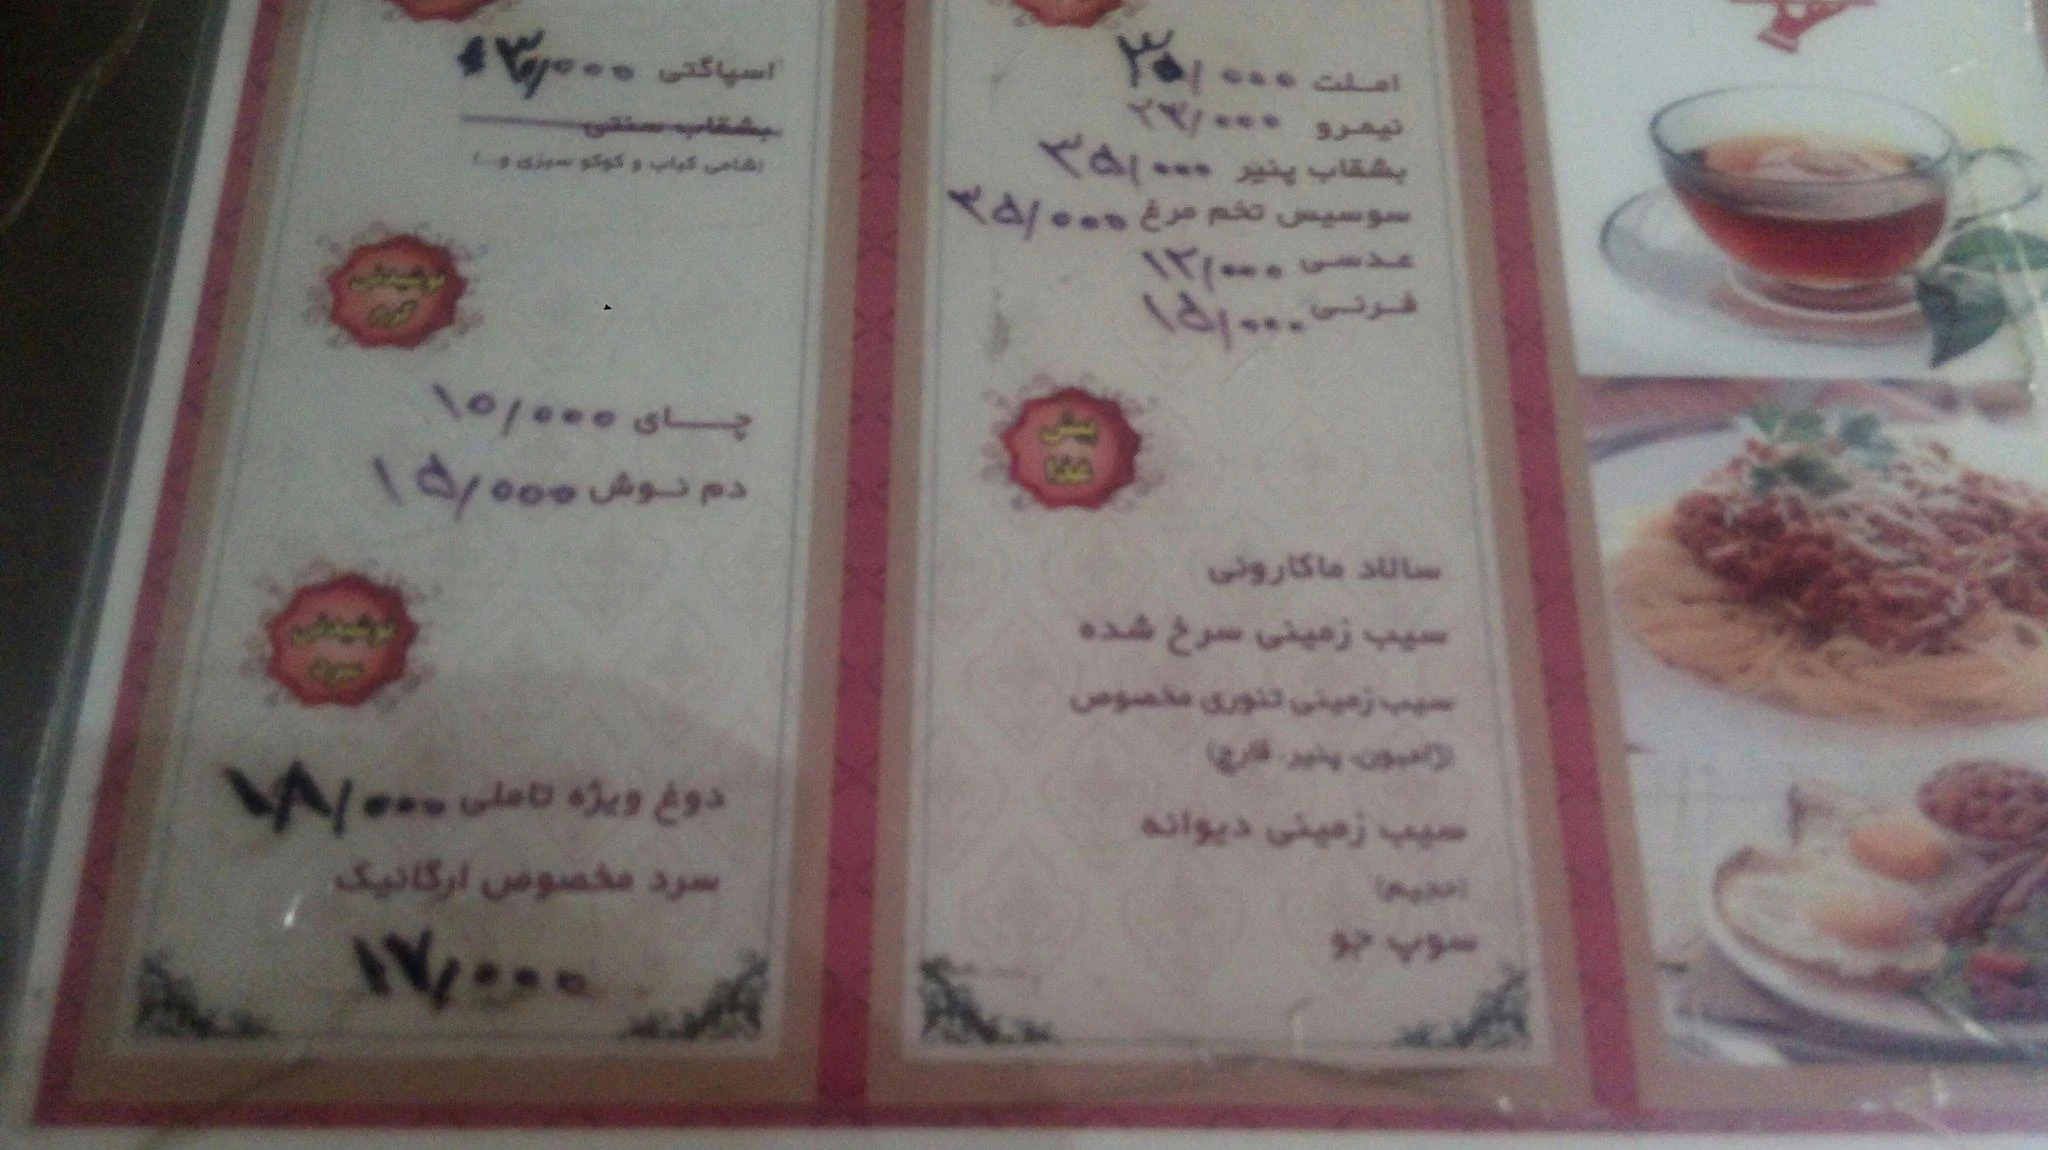 املت ۳۰/۰۰۰
نیمرو ۲۳/۰۰۰
بشقاب پنیر ۳۵/۰۰۰
سوسیس تخم مرغ ۳۵/۰۰۰
عدسی ۱۲/۰۰۰
فرنی ۱۵/۰۰۰
پیش
غذا
سالاد ماکارونی
سیب زمینی سرخ شده
سیب زمینی تنوری مخصوص
(ژامبون، پنیر، قارچ)
سیب زمینی دیوانه
(حجیم)
سوپ جو
اسپاگتی ۳۰/۰۰۰
بشقاب سنتی
(شامی کباب و کوکو سبزی و...)
نوشیدنی
گرم
چای ۱۰/۰۰۰
دم نوش ۱۵/۰۰۰
نوشیدنی
سرد
دوغ ویژه تاملی ۱۸/۰۰۰
سرد مخصوص ارگانیک
۱۷/۰۰۰